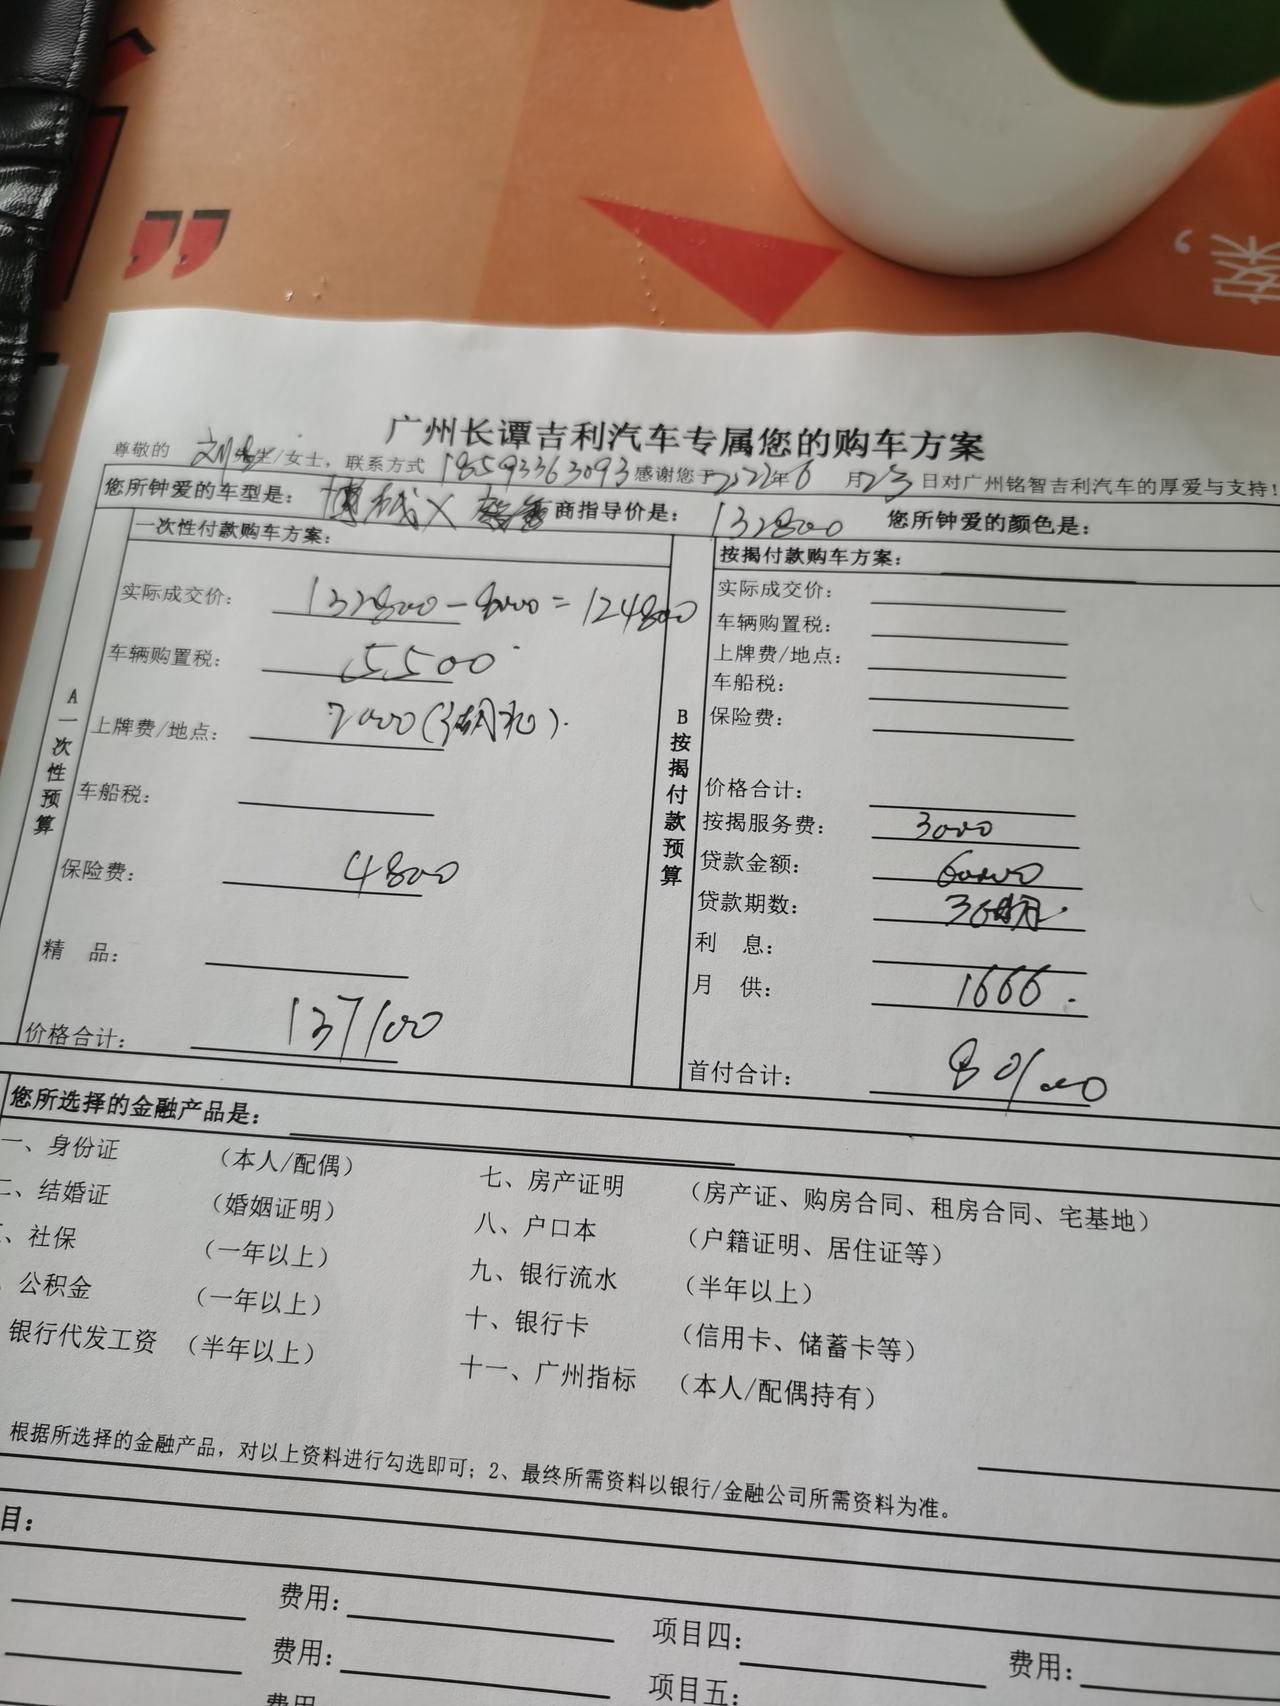 ”
案,
广州长谭吉利汽车专属您的购车方案
尊敬的 刘先生/女士，联系方式 18593363093 感谢您于2022年6月23日对广州铭智吉利汽车的厚爱与支持！
您所钟爱的车型是： 博越X 商指导价是： 132800 您所钟爱的颜色是：
A一次性预算
一次性付款购车方案：
实际成交价： 132800-8000=124800
车辆购置税： 5500
上牌费/地点： 2000
车船税：
保险费： 4800
精 品：
价格合计： 137100
B按揭付款预算
按揭付款购车方案：
实际成交价：
车辆购置税：
上牌费/地点：
车船税：
保险费：
价格合计：
按揭服务费： 3000
贷款金额： 60000
贷款期数： 36个月
利 息：
月 供： 1666.
首付合计： 80100
您所选择的金融产品是：
一、身份证 （本人/配偶） 七、房产证明 （房产证、购房合同、租房合同、宅基地）
二、结婚证 （婚姻证明） 八、户口本 （户籍证明、居住证等）
、社保 （一年以上） 九、银行流水 （半年以上）
、公积金 （一年以上） 十、银行卡 （信用卡、储蓄卡等）
银行代发工资 （半年以上） 十一、广州指标 （本人/配偶持有）
根据所选择的金融产品，对以上资料进行勾选即可；2、最终所需资料以银行/金融公司所需资料为准。
目：
费用： 项目四： 费用：
费用： 项目五：
费用